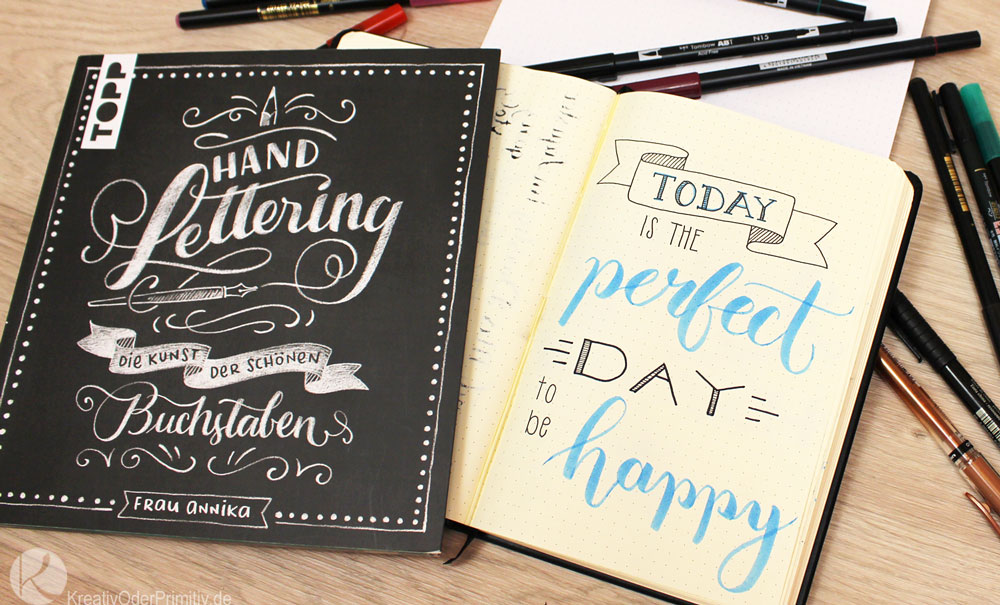 TOPP
HAND
Lettering
DIE KUNST
DER SCHÖNEN
Buchstaben
FRAU ANNIKA
TODAY
IS THE
perfect
DAY
to
be
happy
Tombow ABT N15
KreativOderPrimitiv.de